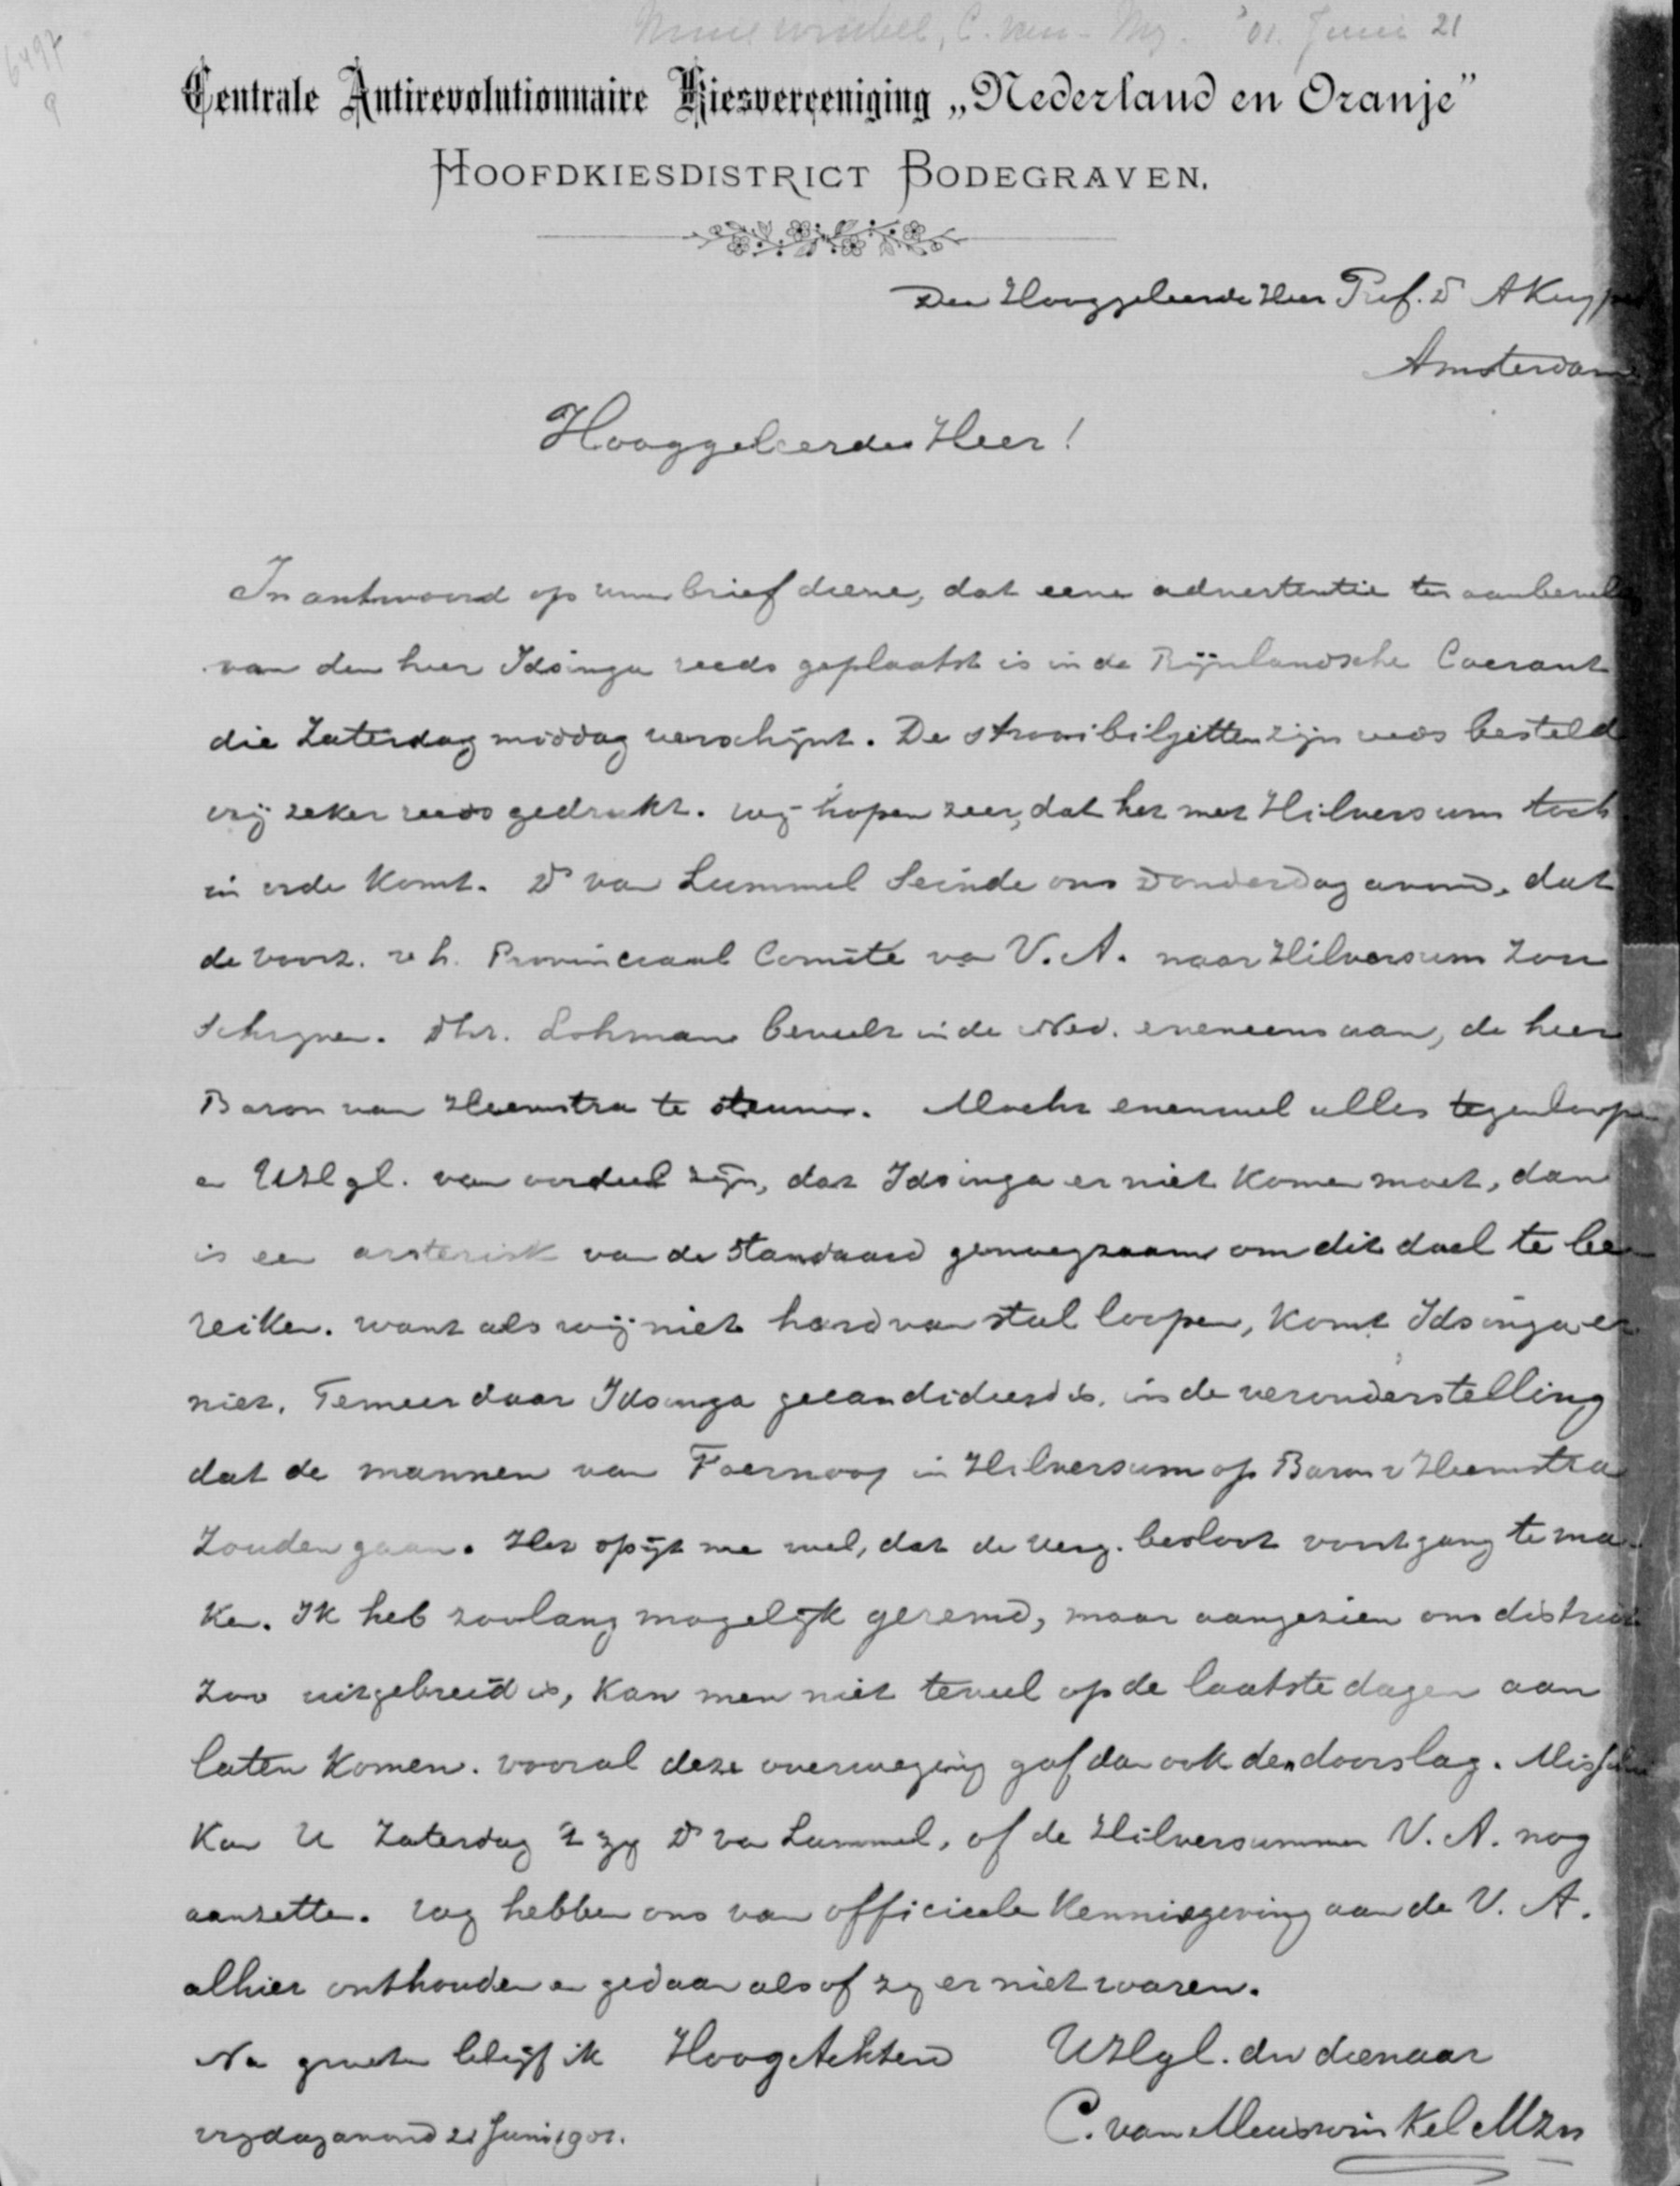 '01. Juni 21
6497
9
Centrale Antirevolutionnaire Kiesvereeniging „Nederland en Oranje”
HOOFDKIESDISTRICT BODEGRAVEN.
Den Hooggeleerde Heer Prof. Dr A Kuyper
Amsterdam
Hooggeleerde Heer!
In antwoord op uw brief diene, dat eene advertentie ter aanbeveling
van den heer Idsinga reeds geplaatst is in de Rijnlandsche Courant
die Zaterdag middag verschijnt. De strooibiljetten zijn reeds besteld
vrij zeker reeds gedrukt. wij hopen zeer, dat het met Hilversum toch
in orde komt. Ds van Lummel Seinde ons Donderdag avond, dat
de voorz. v h. Provinciaal Comité va V. A. naar Hilversum zou
Schrijven. Dhr. Lohman beveelt in de Ned. eveneens aan, de heer
Baron van Heemstra te steunen. Mocht evenwel alles tegenloopen
en UHlgl. van oordeel zijn, dat Idsinga er niet komen moet, dan
is een arsterisk van de Standaard genoegzaam om dit doel te be
reiken. want als wij niet hard van stal loopen, komt Idsinga er
niet. Temeer daar Idsinga gecandideerd is, in de veronderstelling
dat de mannen van in Hilversum op Baron v Heemstra
Zouden gaan. Het spijt me wel, dat de verg. besloot voortgang te ma-
ken. Ik heb zoolang mogelijk geremd, maar aangezien ons district
zoo uitgebreid is, kan men niet teveel op de laatste dagen aan
laten komen. vooral deze overweging gaf dan ook den doorslag. Misschien
Kan U Zaterdag 't zij Ds van Lummel, of de Hilversummer V. A. nog
aanzetten. wij hebben ons van officieele Kennisgeving aan de V. A.
alhier onthouden en gedaan alsof zij er niet waren.
Na groeten blijf ik HoogAchtend UHlgl. dw dienaar
vrijdagavond 21 Juni 1901. C. van Meuswinkel Mzn